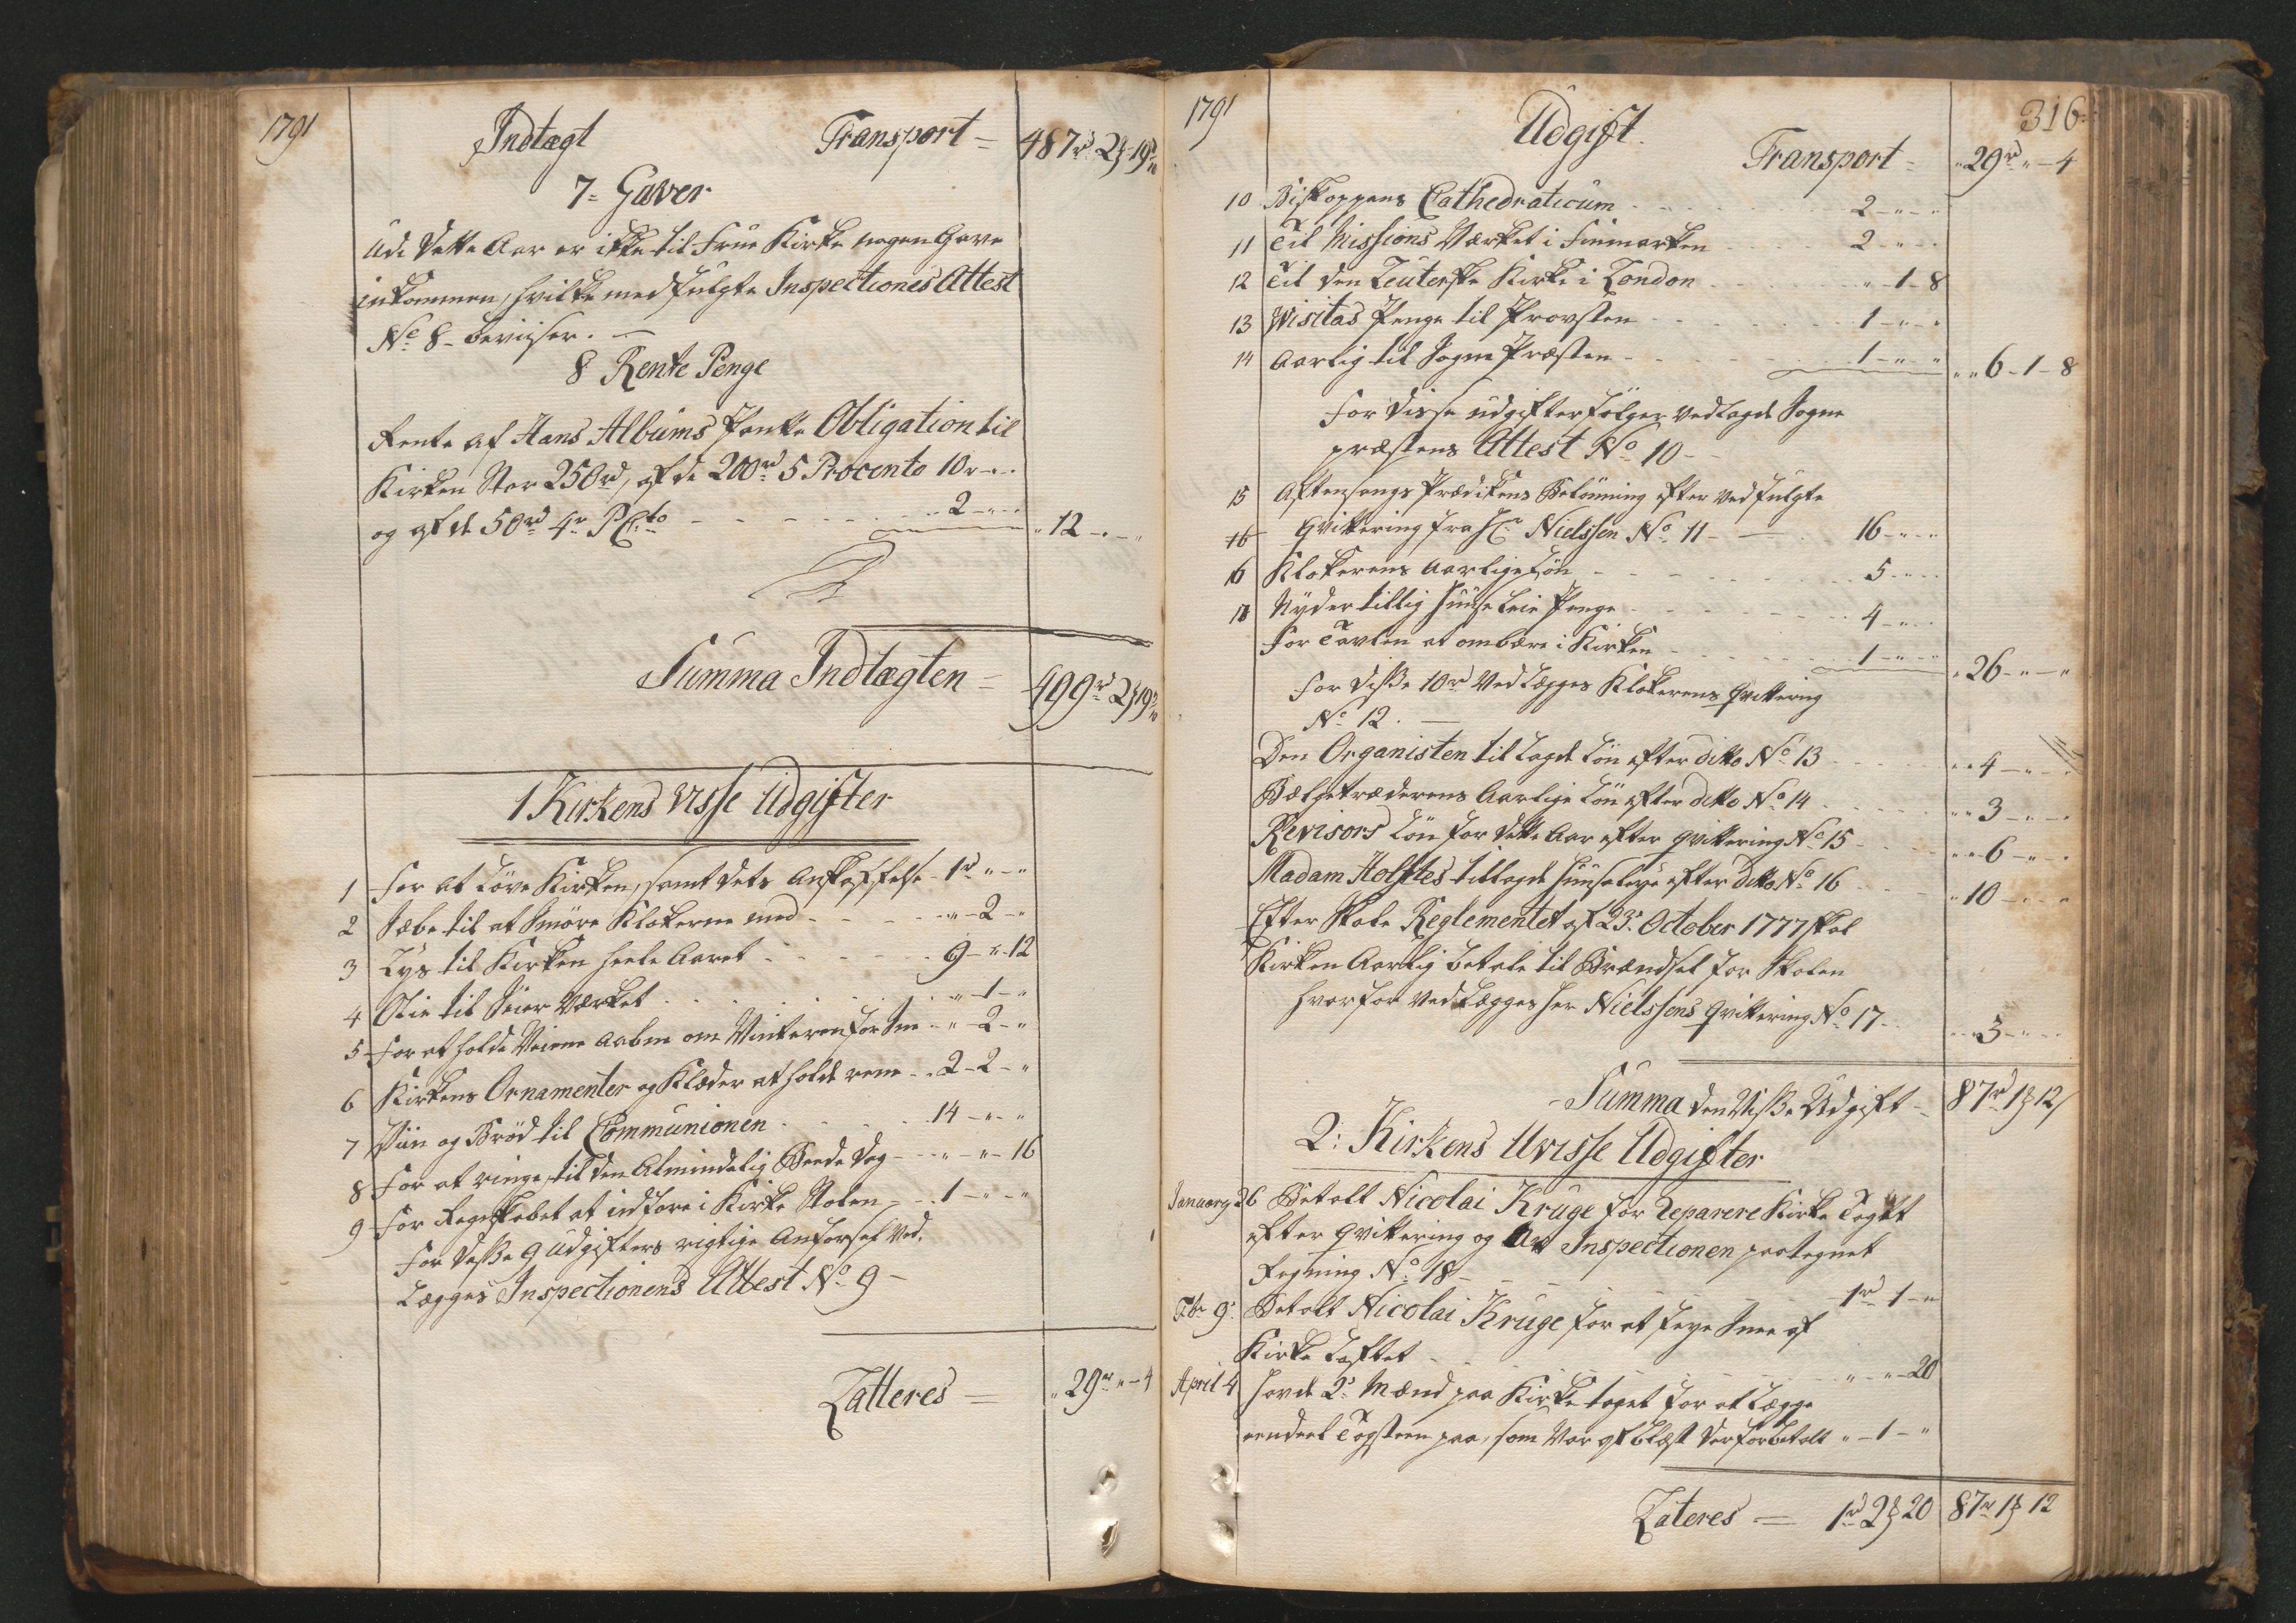 1791
Indtægt Transport = 487rd 2ʒ 19s
7= Gaver
Udi dette Aar er ikke til Frue Kirke nogen Gave
inkommen, hvilke medfulgte Inspectiones Attest
No 8 - beviser. —
8 Rente Penge
Rente af Hans Albums Pante Obligation til
Kirken Stor 250rd, af de 200rd 5 Procento 10 - " - "
og af de 50rd 4r PCto - - - 2 - " - " " 12 - " - "
Summa Indtægten = 499rd 2ʒ 19s
1 Kirkens Visse Udgifter
1 For at Løve Kirken, samt dets Anskaffelse - 1rd " - "
2 Sæbe til at Smøre Klokerne med - - - " - 2 - "
3 Lys til Kirken heele Aaret - - - 9 - " - 12
4 Olie til Seier Værket - - - " - 1 - "
5 For at holde Veiene aabne om Vinteren for Sne - " - 2 - "
6 Kirkens Ornamenter og Klæder at holde rene - 2 - 2 - "
7 Viin og Brød til Communionen - - - 14 - " - "
8 For at ringe til den Almindelig Beede Dag - - " - " - 16
9 For Regnskabet at indføre i Kirke Stolen - - 1 - " - "
For disse 9 Udgifters rigtige Anførsel Ved-
Lægges Inspectionens Attest No 9 -
Latteres = " 29rd " - 4
1791
316
Udgift.
Transport = " 29rd " - 4
10 Biskoppens Cathedraticum - - - 2 - " - "
11 Til Missions Værket i Finmarken - - - 2 - " - "
12 Til den Leuterske Kirke i London - - - " - 1 - 8
13 Visitas Penge til Provsten - - - 1 - " - "
14 Aarlig til Sogne Præsten - - - 1 - " - " " " 6 - 1 - 8
For disse udgifter følger vedlagde Sogne
præstens Attest No 10 -
15 Aftensangs Prædikens Belønning efter vedfulgte
16 Qvittering fra Hr Nielssen No 11 - - 16 - " - "
16 Klokerens Aarlige Løn - - - 5 - " - "
18 Nyder tillig Huuse Leie Penge - - - 4 - " - "
For Tavlen at ombære i Kirken - - - 1 - " - " " 26 - " - "
For disse 10rd Vedlægges Klokerens Qvittering
No 12. —
Den Organisten tillagde Løn efter ditto No 13 - - - " " 4 - " - "
Bælgetræderens Aarlige Løn efter ditto No 14 - - - " " 3 - " - "
Revisors Løn for dette Aar efter Qvittering No 15 - - - " " 6 - " - "
Madam Holstes tillagde Huuseleye efter Ditto No 16 - - - " 10 - " - "
Efter Skole Reglementet af 23. October 1777 skal
Kirken Aarlig betale til Brændsel for Skolen
hvorfor Vedlægges Her Nielssens Qvittering No 17 - - " " 3 - " - "
Summa den Visse Udgift - 87rd 1ʒ 12
2: Kirkens Uvisse Udgifter
January 26 Betalt Nicolai Kruge for Reparere Kirke Taget
efter Qvittering og Av Inspectionen paategnet
Regning No 18 - - - 1rd 1 - "
Feb: 9. Betalt Nicolai Kruge for at feye Snee af
Kirke Loftet - - - " - " - 20
April 4 Havde 2de Mænd paa Kirke taget for at Lægge
eendeel Tagsteen paa, som Var afblæst derfor betalt " - 1 - "
Lateres = 1rd 2ʒ 20 87rd 1ʒ 12